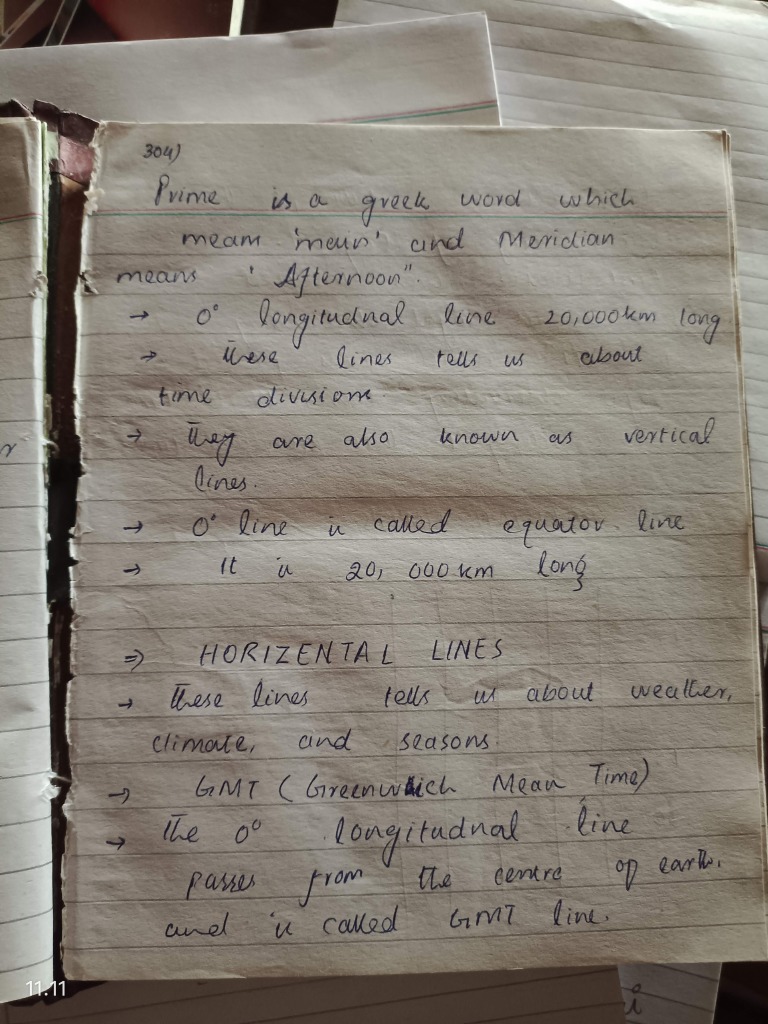 304)
Prime is a greek word which
mean 'mean' and Meridian
means ' Afternoon".
→ 0° longitudnal line 20,000km long
→ these lines tells us about
time divisions.
→ they are also known as vertical
lines.
→ 0° line is called equator line
→ It is 20, 000 km long
⇒ HORIZENTAL LINES
→ these lines tells us about weather,
climate, and seasons.
→ GMT (Greenwich Mean Time)
→ the 0° longitudnal line
passes from the centre of earth.
and is called GMT line.
11.11